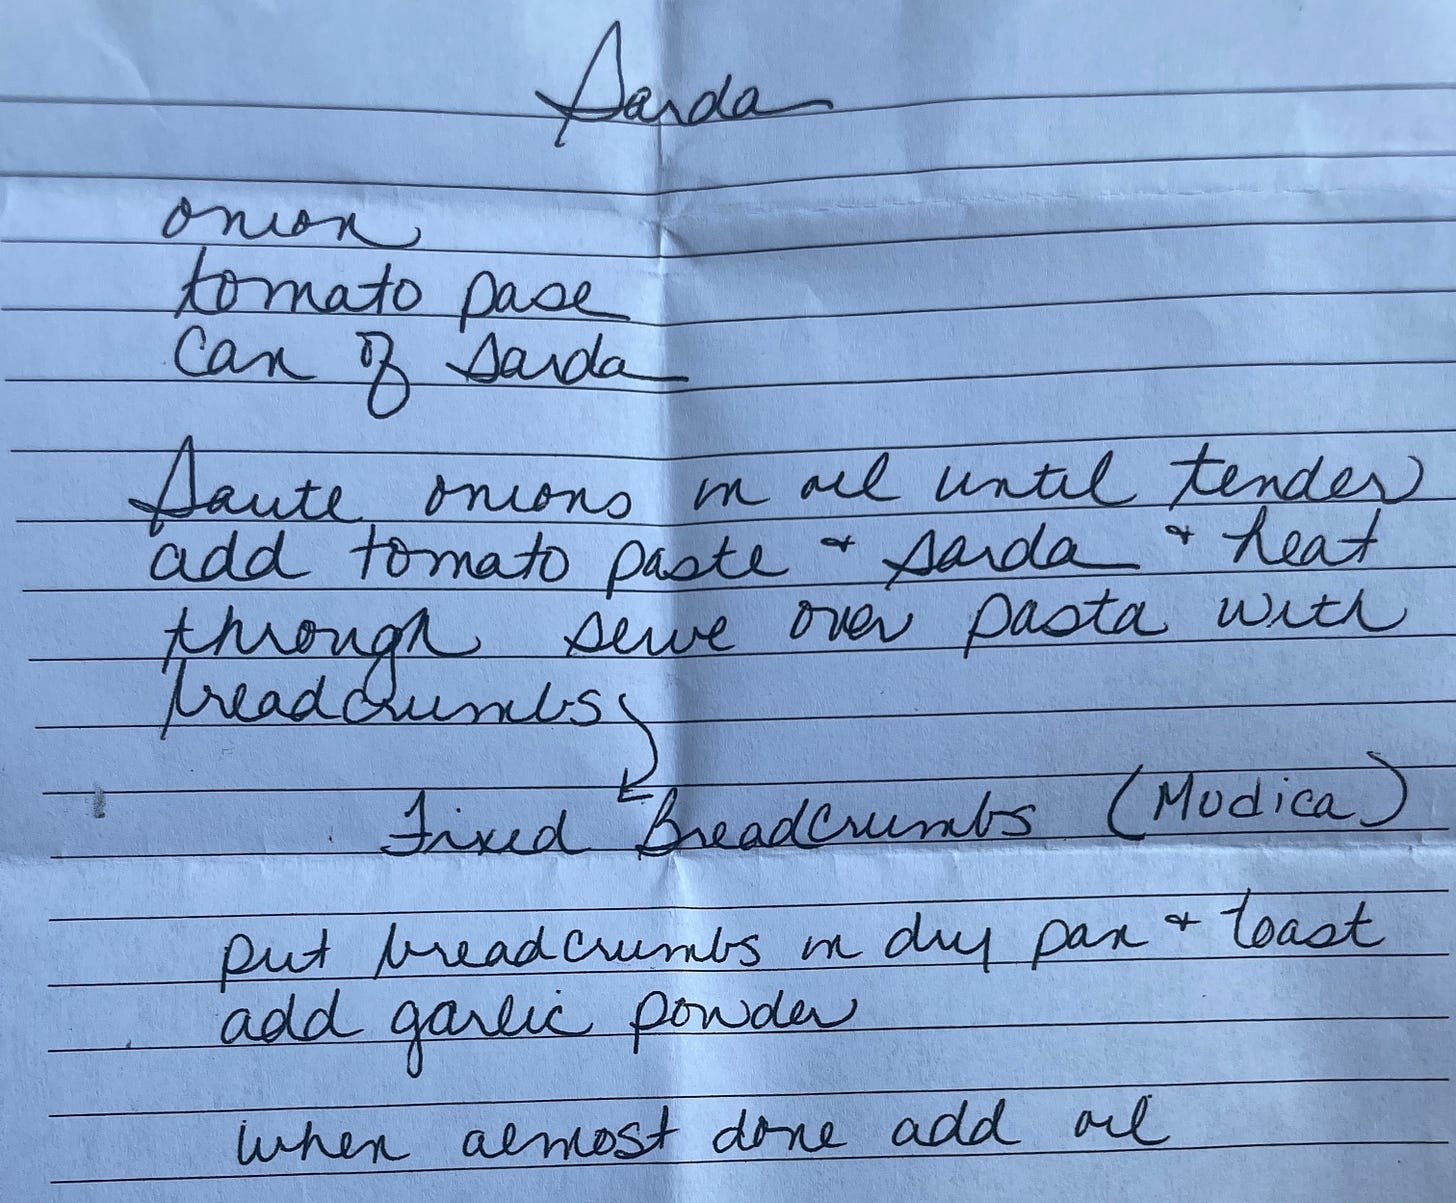 Sarda
onion
tomato pase
Can of sarda
Saute onions in oil until tender
add tomato paste + sarda + heat
through serve over pasta with
breadcrumbs
Fixed Breadcrumbs (Mudica)
put breadcrumbs in dry pan + toast
add garlic powder
when almost done add oil